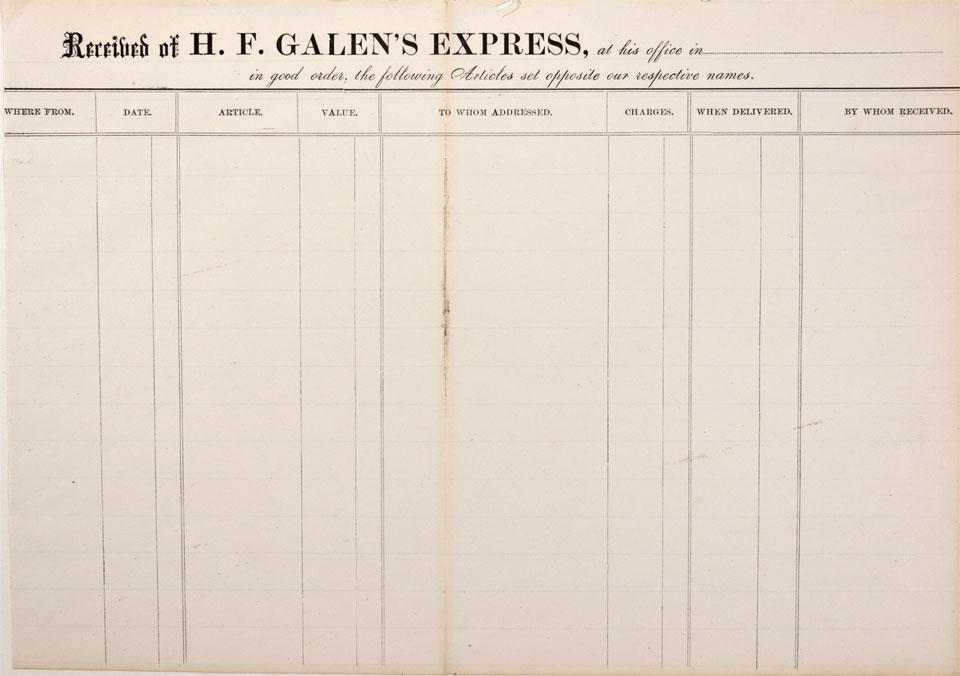 Received of H. F. GALEN'S EXPRESS, at his office in
in good order, the following Articles set opposite our respective names.
WHERE FROM. DATE. ARTICLE. VALUE. TO WHOM ADDRESSED. CHARGES. WHEN DELIVERED. BY WHOM RECEIVED.